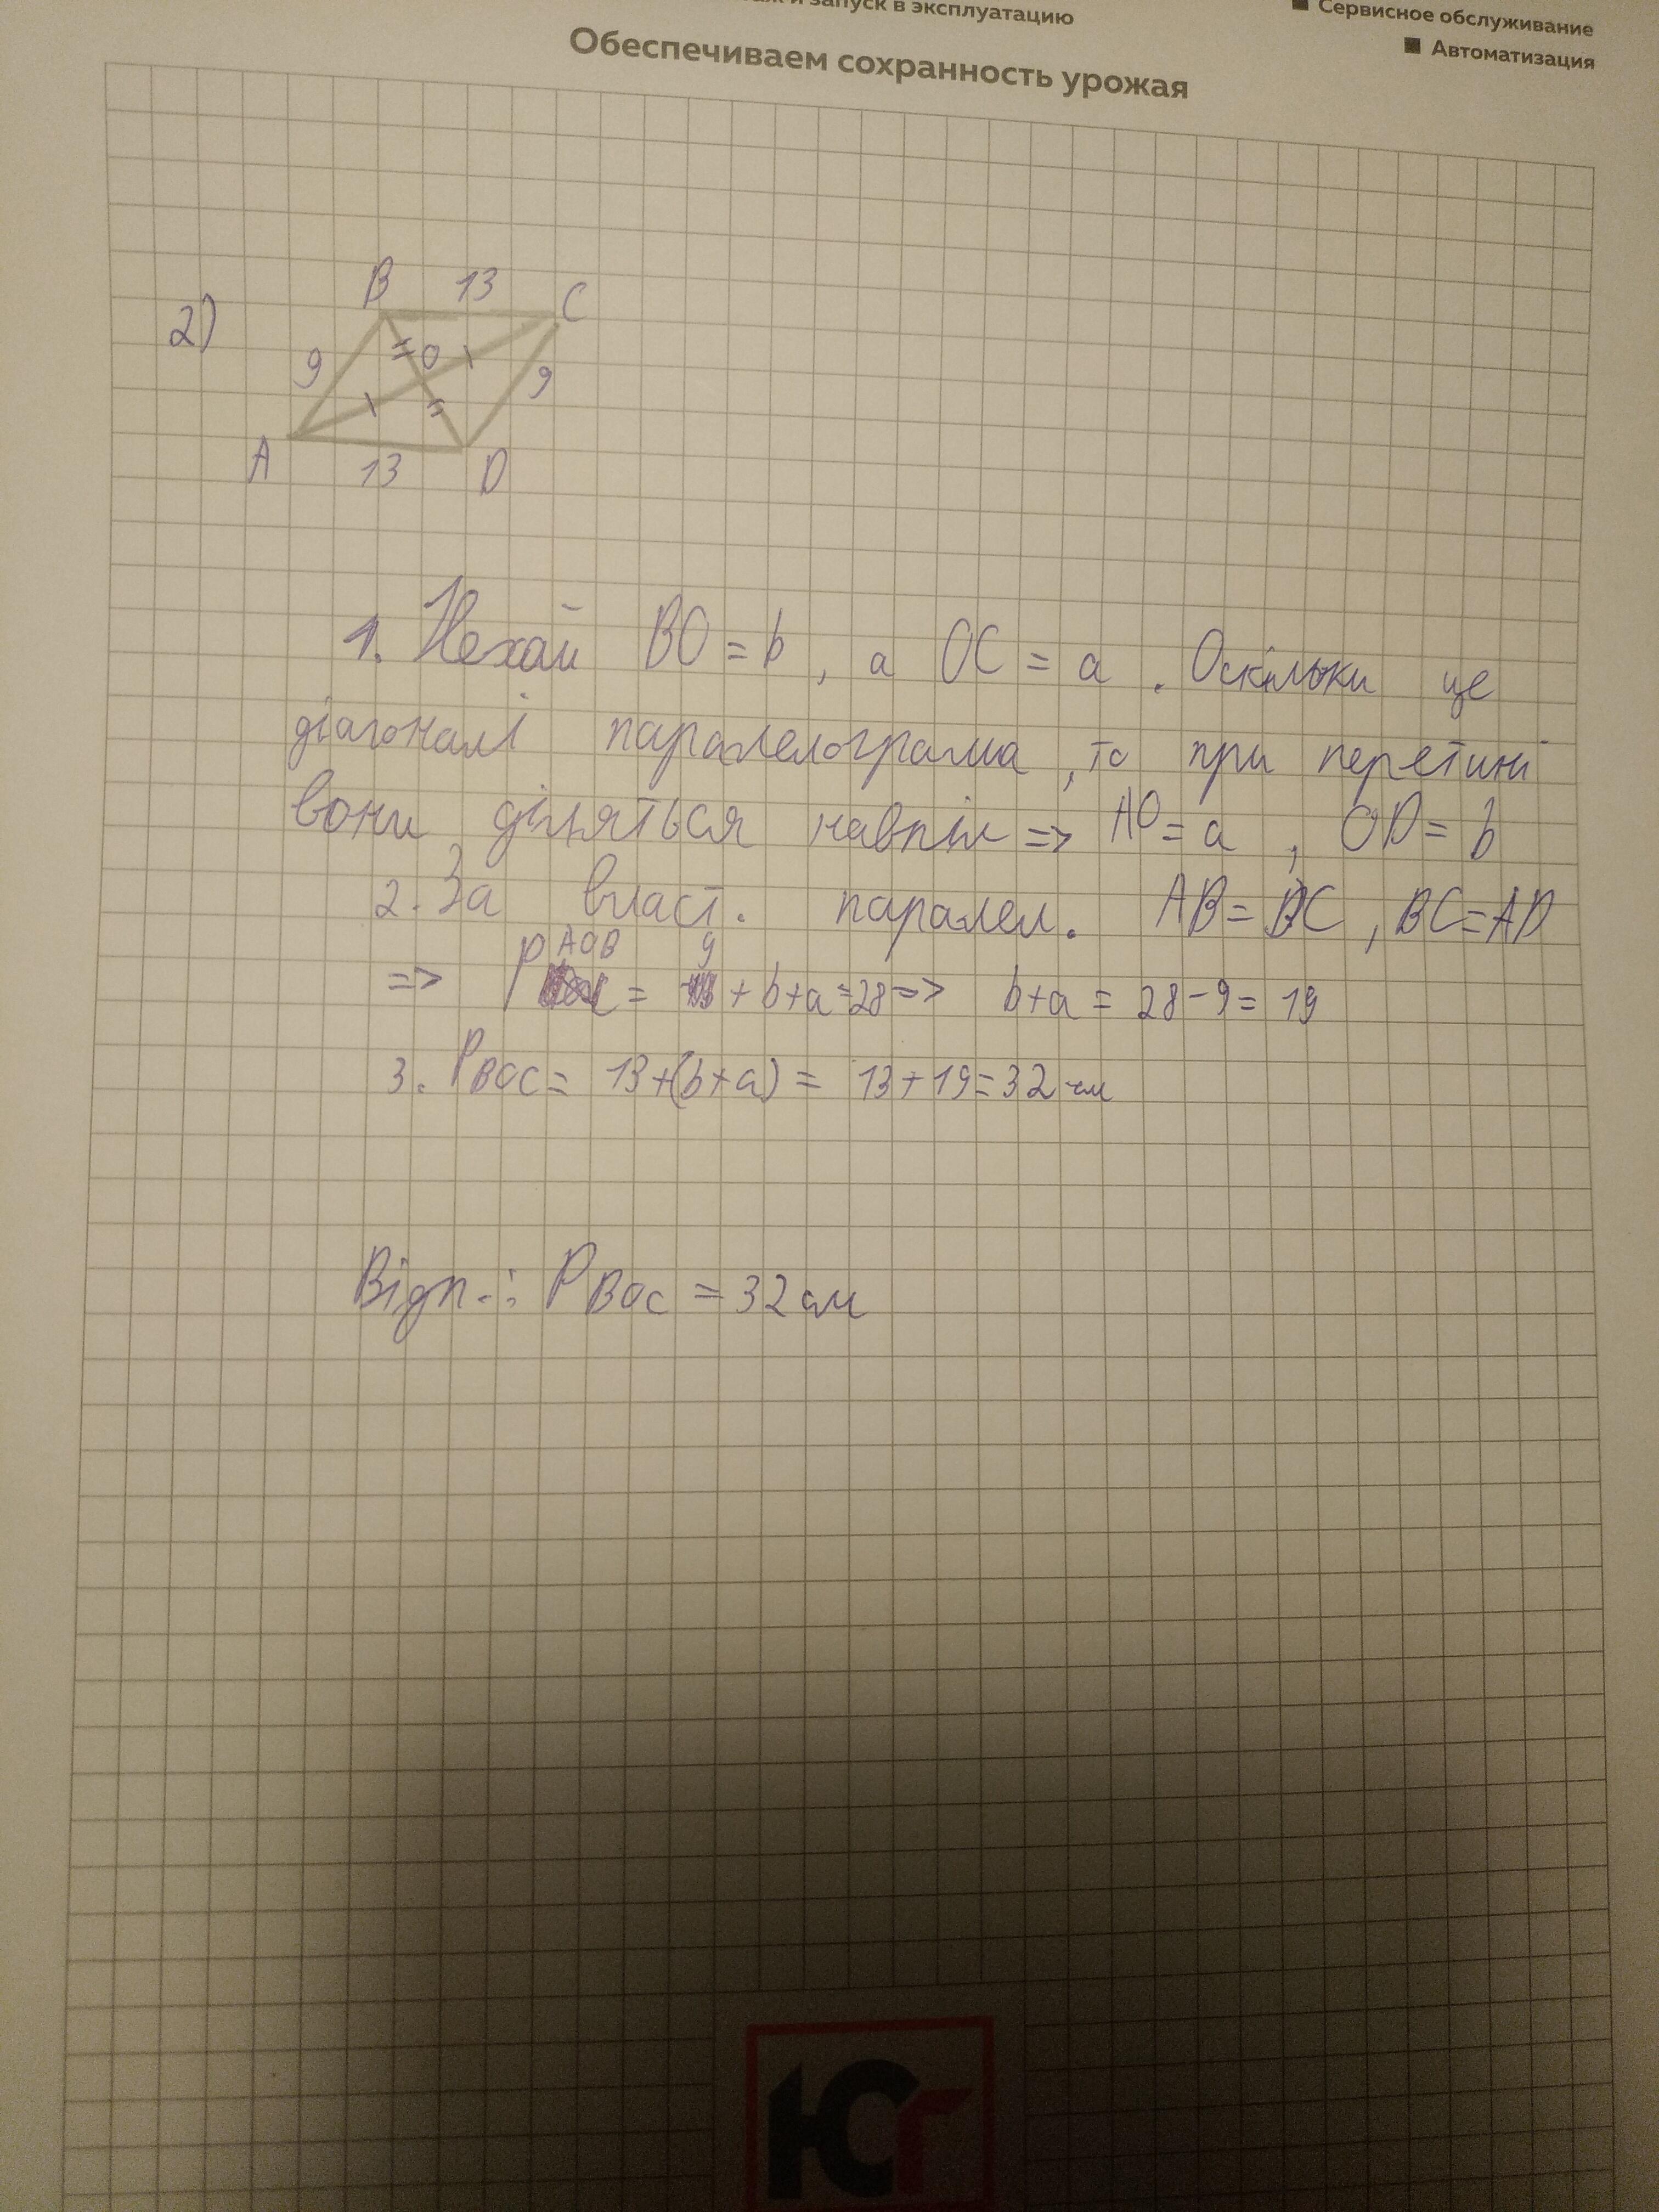 запуск в эксплуатацию
■ Сервисное обслуживание
■ Автоматизация
Обеспечиваем сохранность урожая
2)
B 13 C
9 O 9
A 13 D
1. Нехай BO = b, а OC = a. Оскільки це
діагоналі паралелограма, то при перетині
вони діляться навпіл => AO = a, OD = b
2. За власт. паралел. AB = DC, BC = AD
=> P AOB = 9 + b + a = 28 => b + a = 28 - 9 = 19
3. P BOC = 13 + (b + a) = 13 + 19 = 32 см
Відп.: P BOC = 32 см
ЮГ